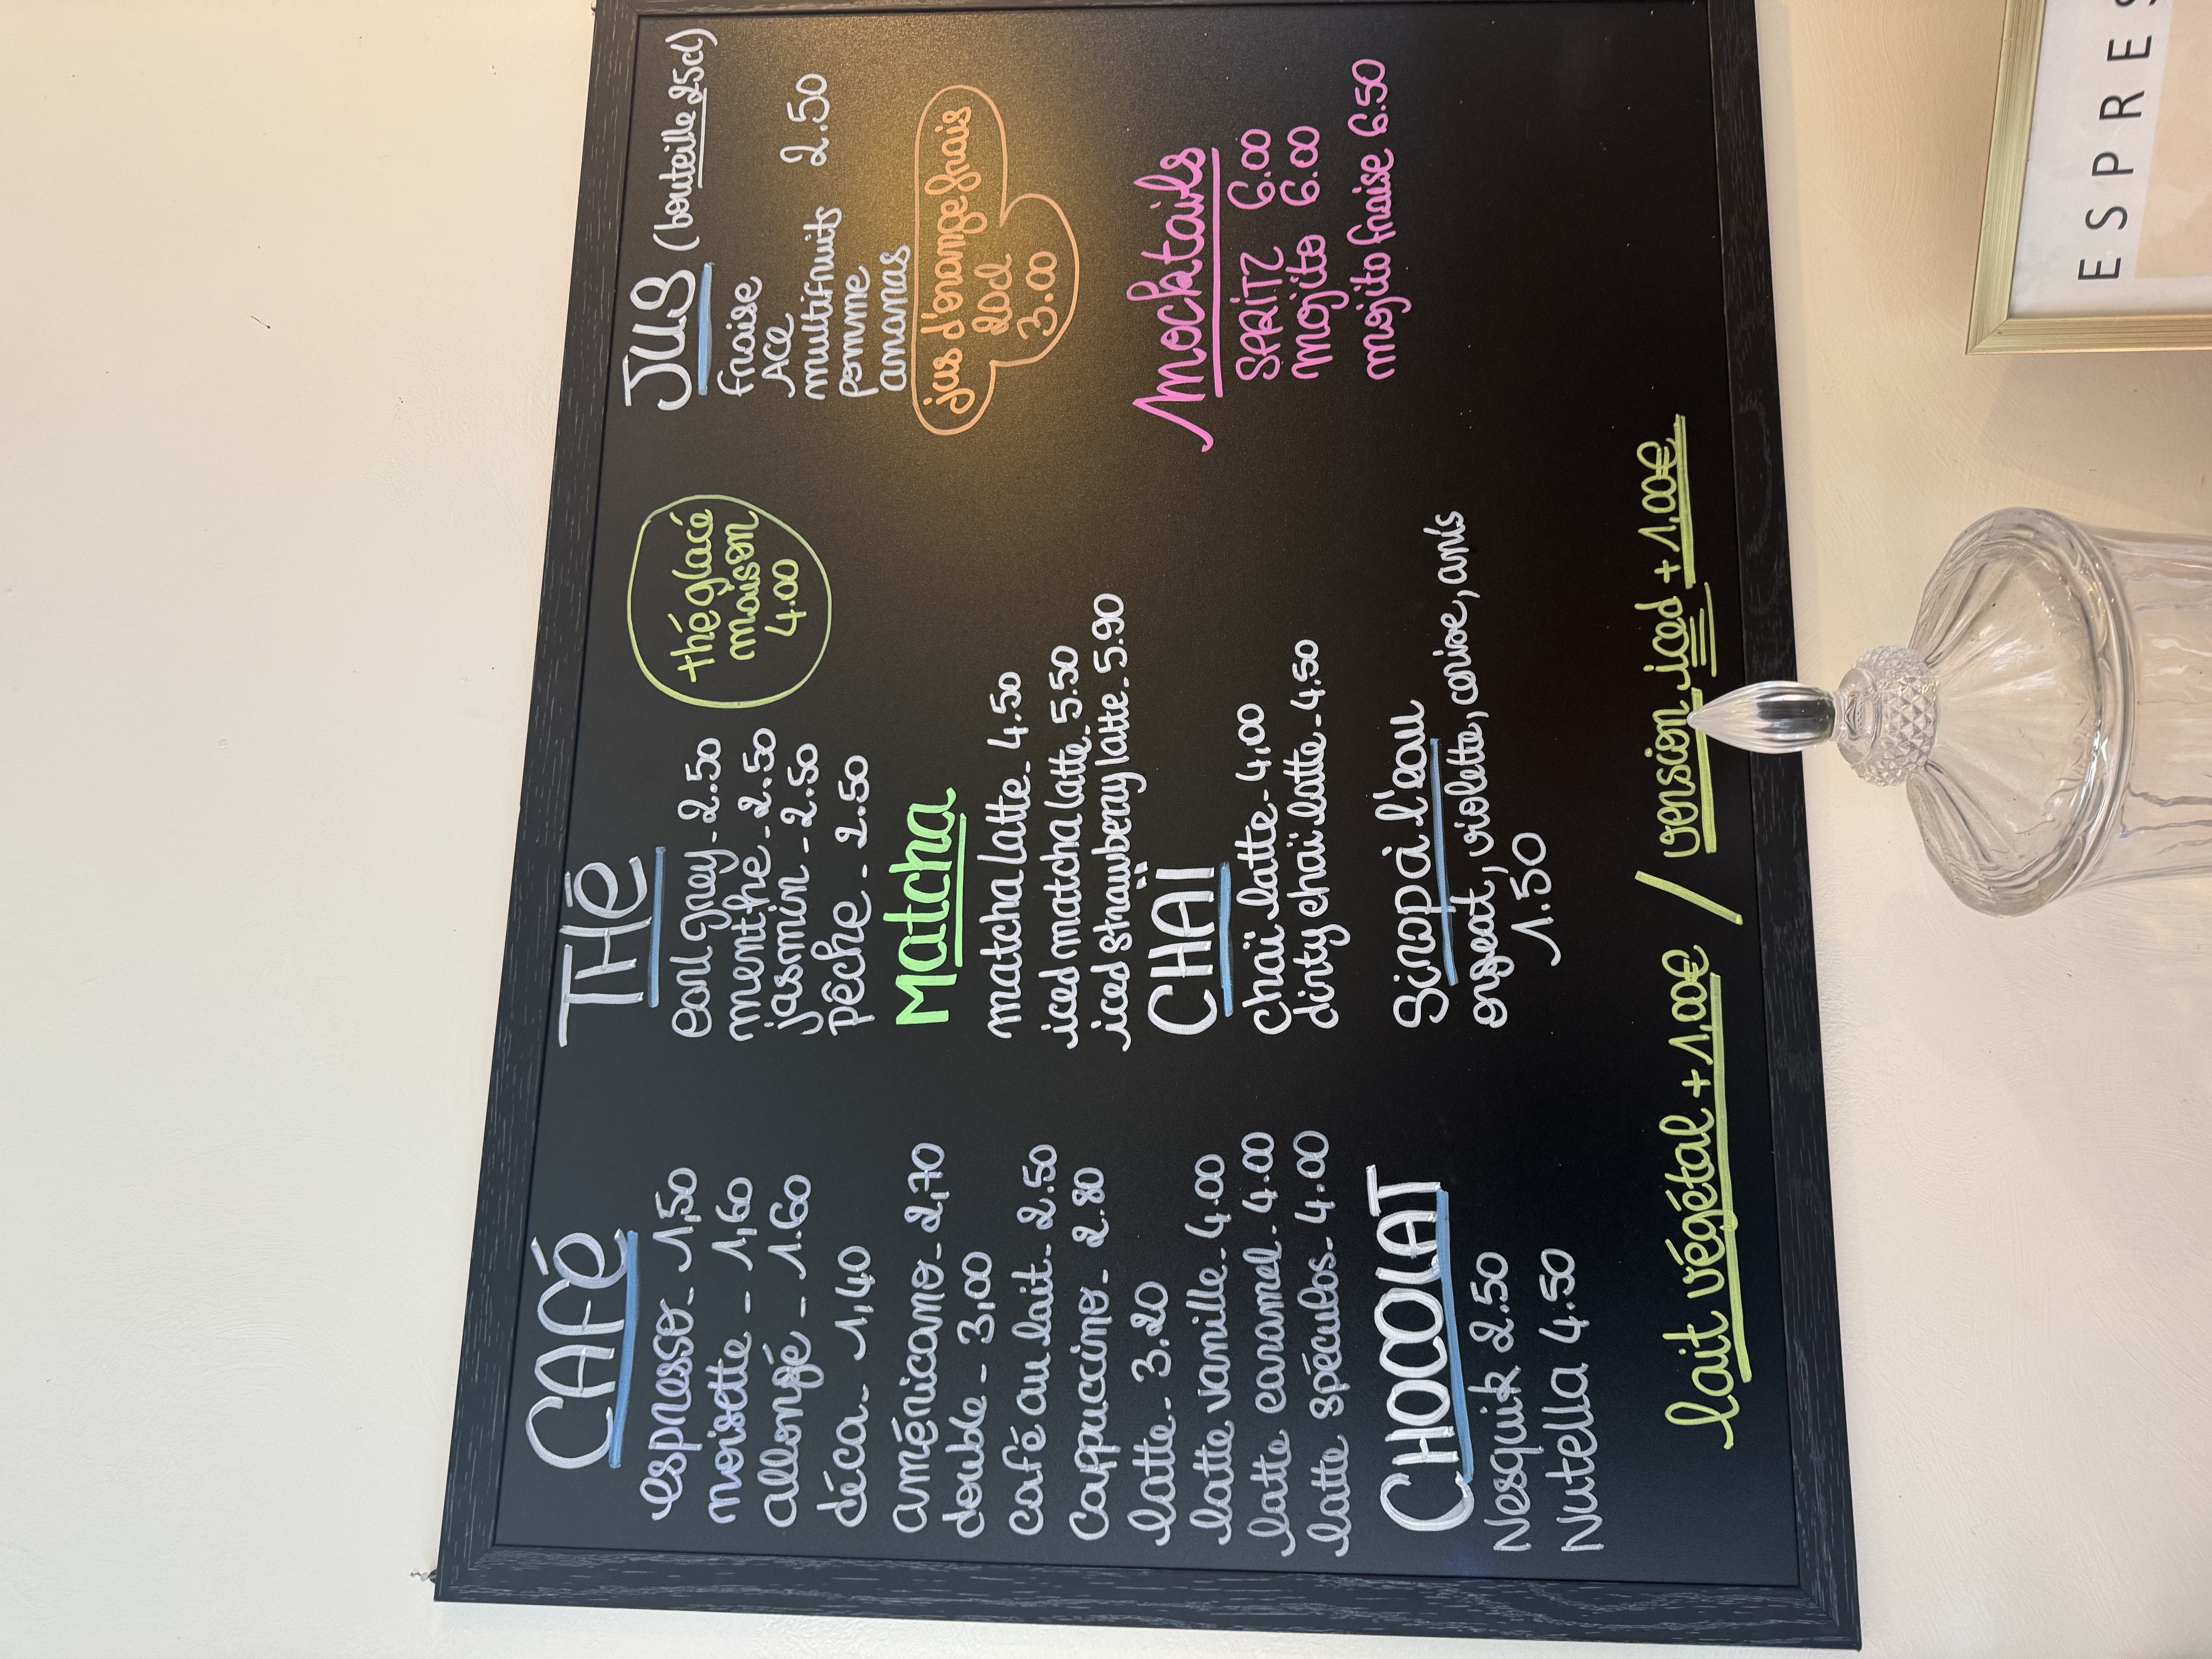 CAFÉ
espresso - 1,50
noisette - 1,60
allongé - 1.60
déca - 1,40
américano - 2,70
double - 3,00
café au lait - 2.50
Cappuccino - 2.80
latte - 3.20
latte vanille - 4.00
latte caramel - 4.00
latte spéculos - 4.00
CHOCOLAT
Nesquik 2.50
Nutella 4.50
THÉ
earl grey - 2.50
menthe - 2.50
jasmin - 2.50
pêche - 2.50
thé glacé
maison
4.00
Matcha
matcha latte - 4.50
iced matcha latte - 5.50
iced strawberry latte - 5.90
CHAÏ
Chaï latte - 4,00
dirty chaï latte - 4.50
Sirop à l'eau
orgeat, violette, cerise, anis
1.50
JUS (bouteille 25cl)
fraise
ACE
multifruits 2.50
pomme
ananas
jus d'orange frais
20cl
3.00
Mocktails
SPRITZ 6.00
Mojito 6.00
mojito fraise 6.50
lait végétal + 1,00€ / version iced + 1,00€
ESPRES